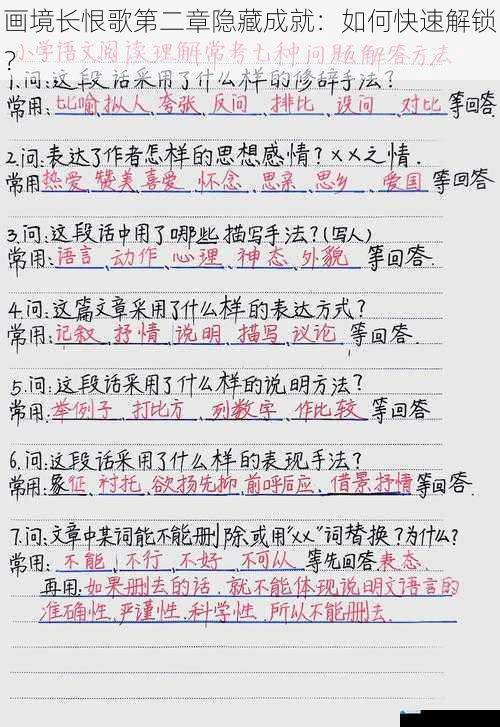 画境长恨歌第二章隐藏成就：如何快速解锁
？
小学语文阅读理解常考七种问题解答方法
1.问:这段话采用了什么样的修辞手法?
常用:比喻拟人、夸张、反问、排比、设问、对比等回答
2.问:表达了作者怎样的思想感情?××之情.
常用热爱、赞美喜爱、怀念、思亲、思乡、爱国等回答
3.问:这段话中用了哪些描写手法?(写人)
常用:语言、动作、心理、神态、外貌等回答.
4.问:这篇文章采用了什么样的表达方式?
常用:记叙、抒情、说明、描写、议论等回答.
5.问:这段话采用了什么样的说明方法?
常用:举例子、打比方、列数字、作比较等回答
6.问:这段话采用了什么样的表现手法?
常用:象征、衬托、欲扬先抑、前呼后应、借景抒情等回答.
7.问:文章中某词能不能删除或用"××"词替换?为什么?
常用:不能、不行、不好、不可从等先回答表态.
再用:如果删去的话,就不能体现说明文语言的
准确性、严谨性、科学性,所以不能删去.